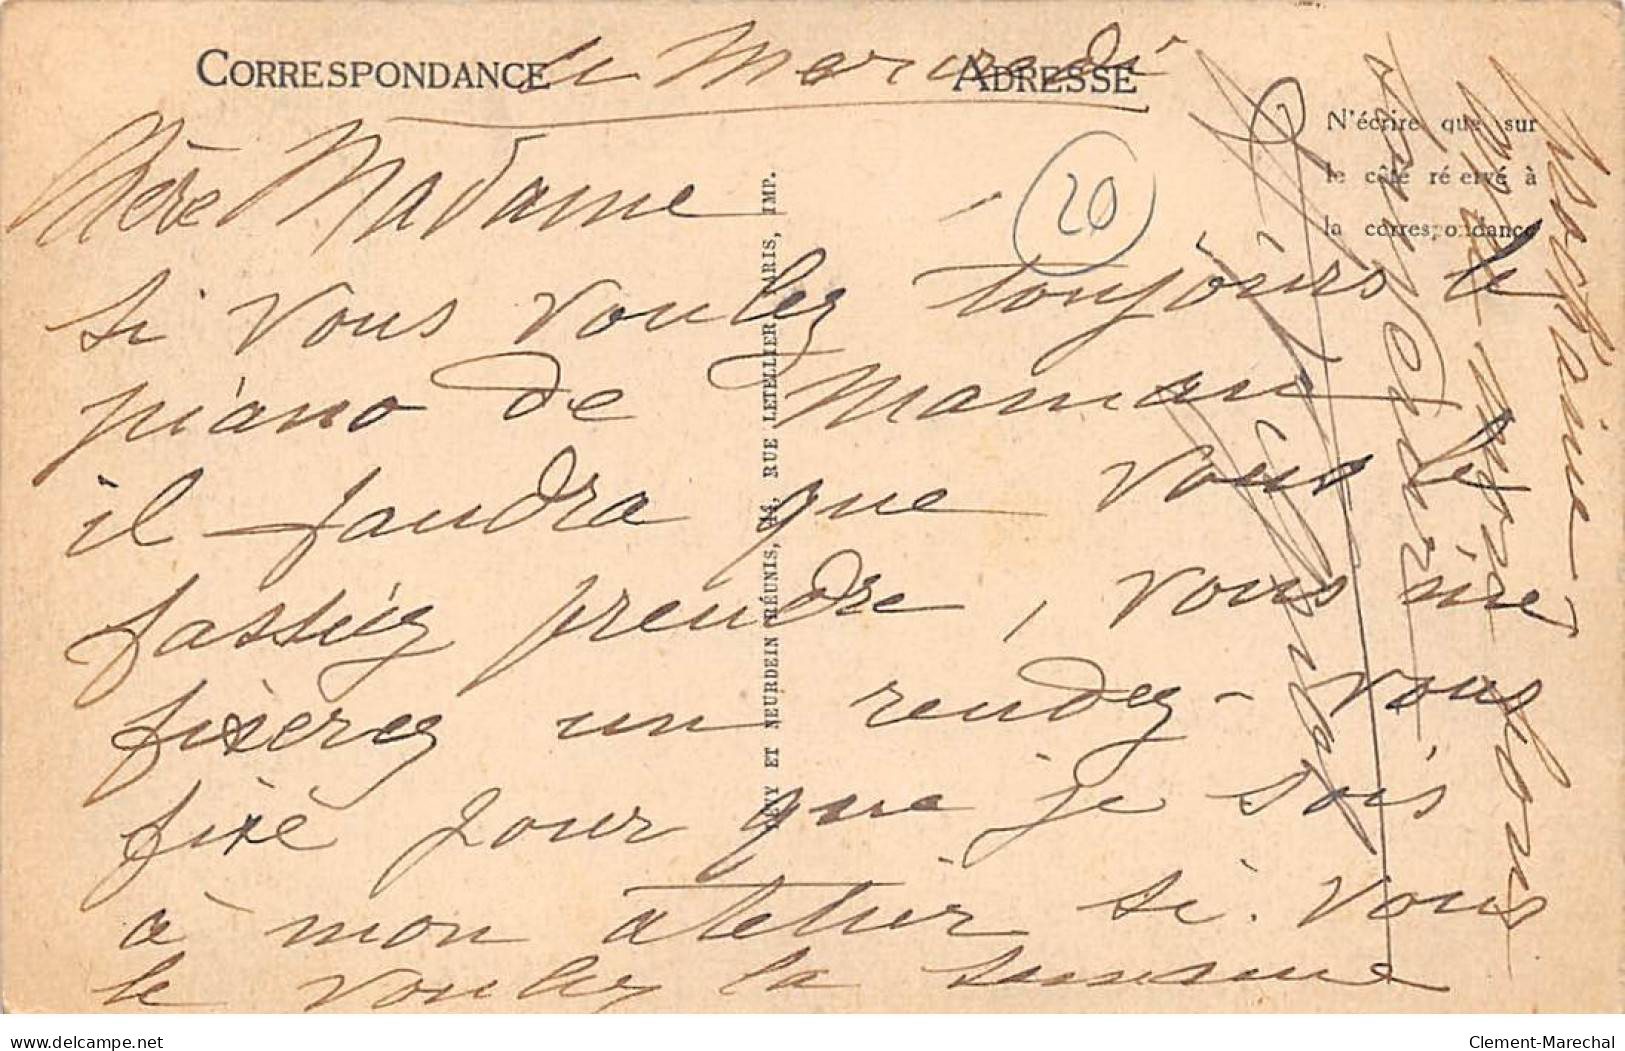 CORRESPONDANCE
ADRESSE
le Mercredi
N'écrire que sur
le côté réservé à
la correspondance
20
Chère Madame
si vous voulez toujours le
piano de Maman
il faudra que vous le
fassiez prendre, vous me
fixerez un rendez-vous
fixé pour que je sois
à mon atelier si vous
le voulez la semaine
prochaine
LÉVY ET NEURDEIN RÉUNIS, 44, RUE LETELLIER, PARIS, IMP.
www.delcampe.net
Clement-Marechal